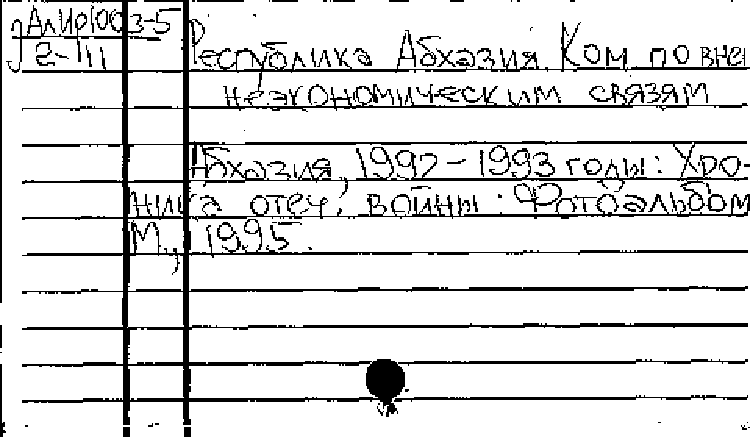 АлИ0/003-5
2-III
Республика Абхазия. Ком по вне
неэкономическим связям
Абхазия, 1992-1993 годы: Хро-
ника отеч. войны: Фотоальбом
М., 1995.